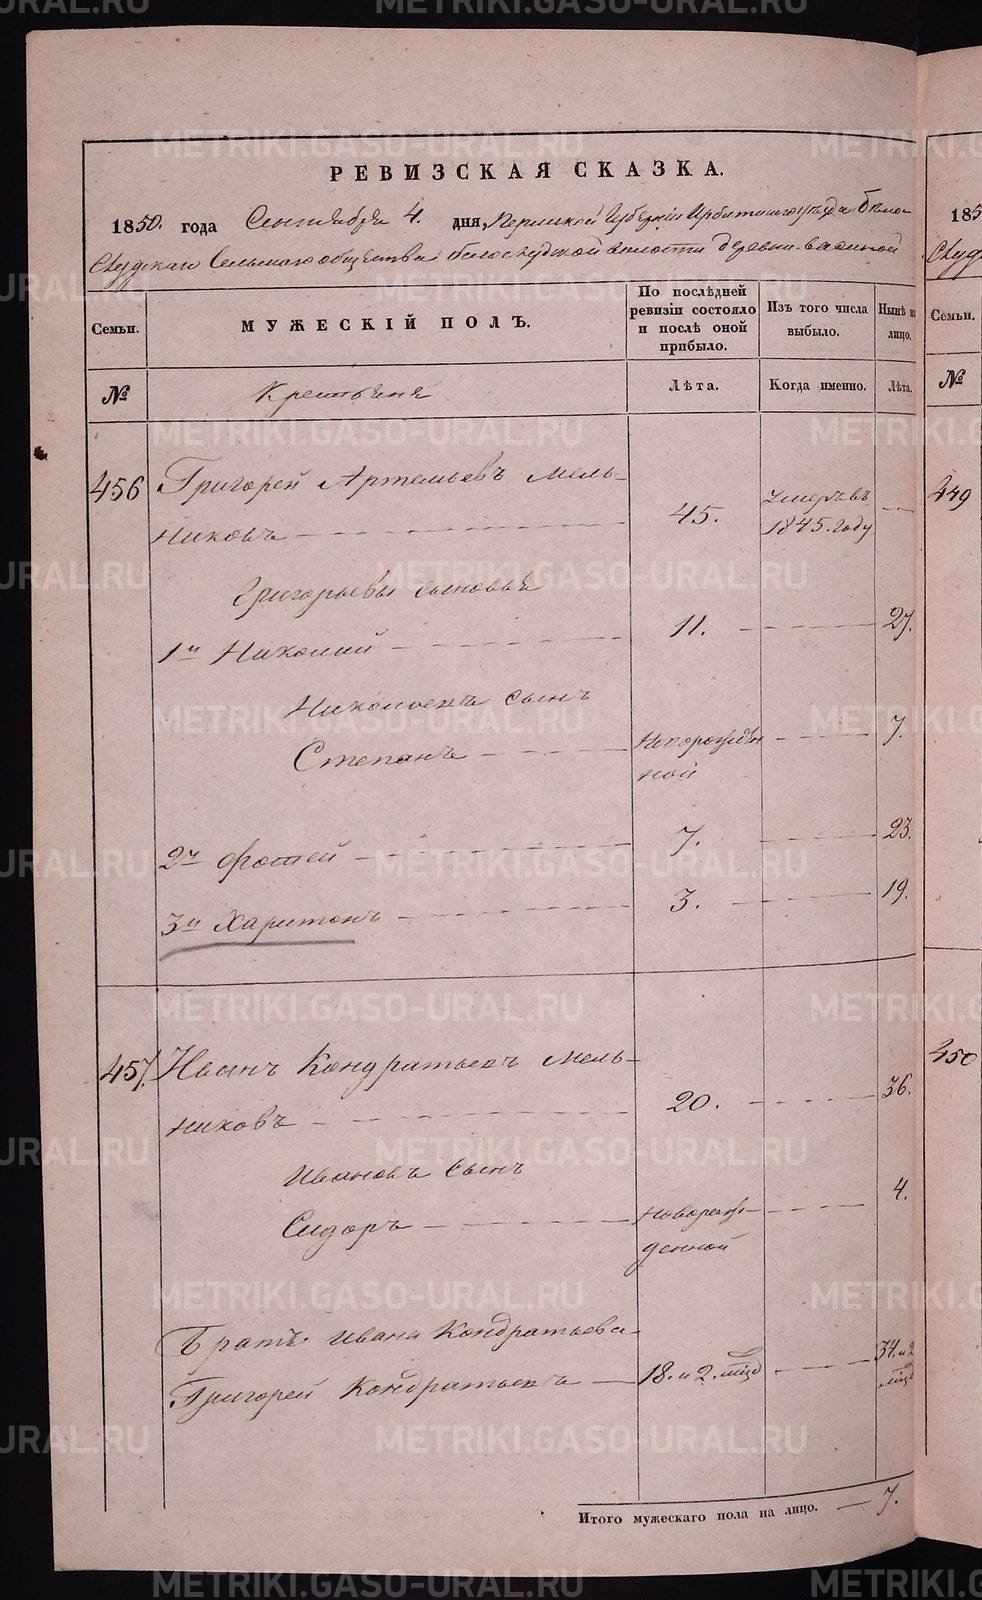 РЕВИЗСКАЯ СКАЗКА.
1850. года Сентября 4. дня, Пермской Губернии Ирбитскаго уѣзда Бѣло-
слудскаго Сельскаго общества Белослудской волости деревни
Семьи.
МУЖЕСКІЙ ПОЛЪ.
По послѣдней ревизіи состояло и послѣ оной прибыло.
Изъ того числа выбыло.
Нынѣ на лицо.
№
Крестьяне
Лѣта.
Когда именно.
Лѣта.
456 Григорей Артемьевъ Мель-
никовъ 45. Умеръ въ 1845. году
Григорьевы сыновья
1й Николай 11. 27.
Николаевъ сынъ
Степанъ Новорожден ной 7.
2й Фотей 7. 23.
3й Харитонъ 3. 19.
457. Иванъ Кондратьевъ Мель-
никовъ 20. 36.
Ивановъ сынъ
Сидоръ Новорож- денной 4.
Братъ Ивана Кондратьева
Григорей Кондратьевъ 18. и 2. мѣс 34. и 2 мѣс
Итого мужескаго пола на лицо. 7.
185
Слуд
Семьи.
№
449
450
METRIKI.GASO-URAL.RU